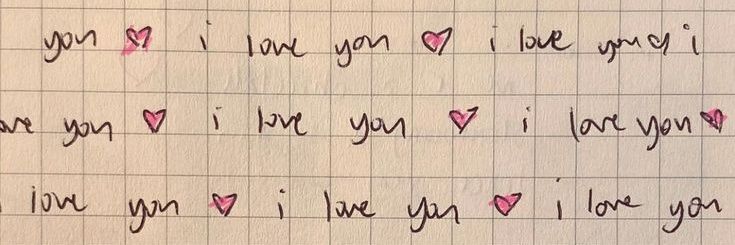 you ♡ i love you ♡ i love you ♡ i
ove you ♡ i love you ♡ i love you ♡
i love you ♡ i love you ♡ i love you